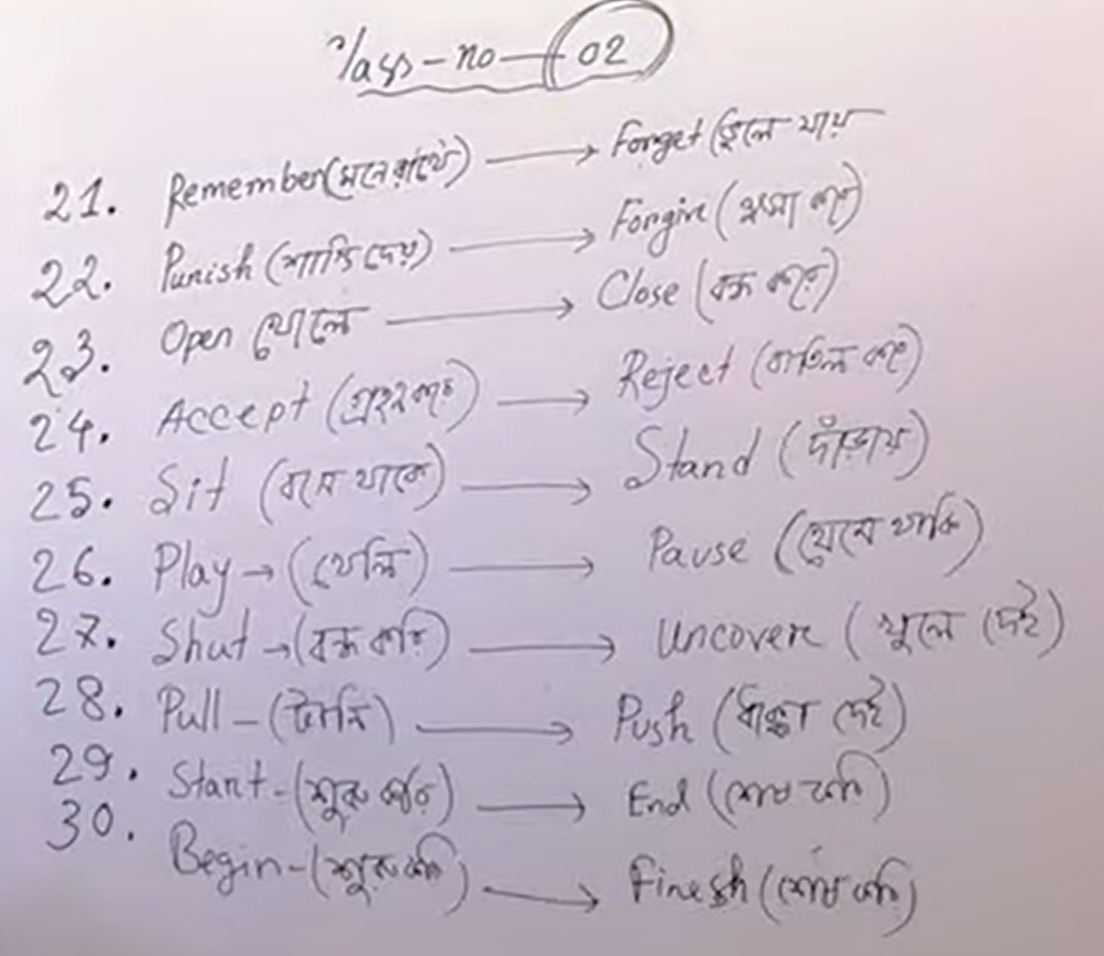 Class - no - 02
21. Remember (মনে রাখে) → Forget (ভুলে যায়)
22. Punish (শাস্তি দেয়) → Forgive (ক্ষমা করে)
23. Open খোলে → Close (বন্ধ করে)
24. Accept (গ্রহণ করে) → Reject (বাতিল করে)
25. Sit (বসে থাকে) → Stand (দাঁড়ায়)
26. Play → (খেলি) → Pause (থেমে থাকি)
27. Shut → (বন্ধ করি) → Uncover (খুলে দেই)
28. Pull - (টানি) → Push (ধাক্কা দেই)
29. Start - (শুরু করি) → End (শেষ করি)
30. Begin - (শুরু করি) → Finesh (শেষ করি)